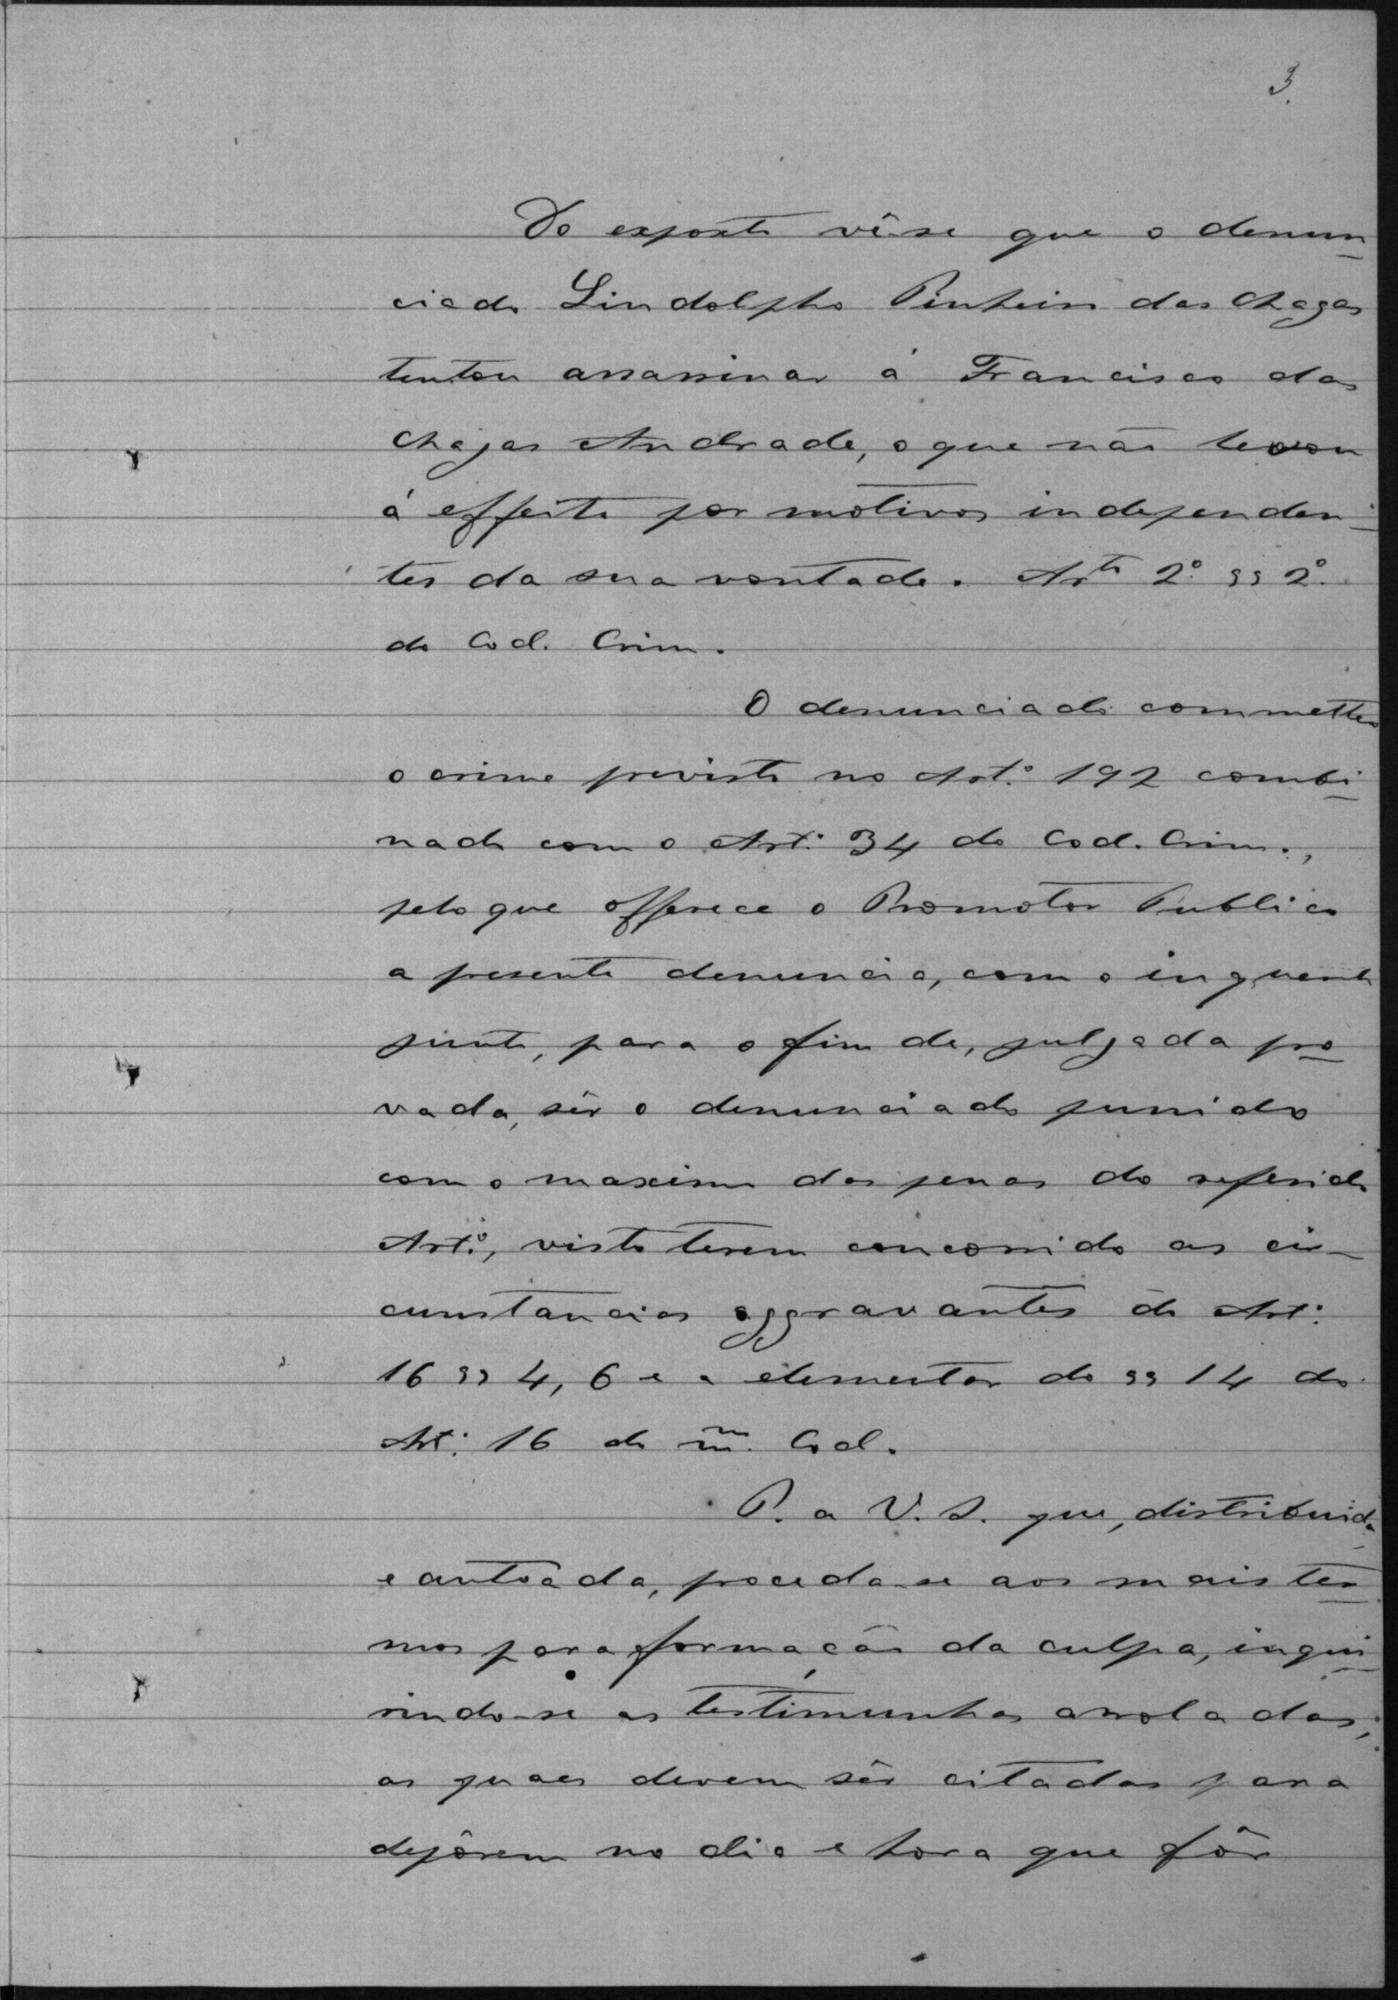 3.
Do exposto vê-se que o denun
ciado Lindolpho Pinheiro das Chagas
tentou assassinar á Francisco das
Chagas Andrade, o que não levou
á effeito por motivos independen-
tes da sua vontade. Arto 2º §§ 2º.
do Cod. Crim.
O denunciado commetteu
o crime previsto no Art.º 192 combi
nado com o Art.º 34 do Cod. Crim.,
pelo que offerece o Promotor Publico
a presente denuncia, com o inquerito
junto, para o fim de, julgada pro
vada, sêr o denunciado punido
com o maximo das penas do referido
Art.º, visto terem concorrido as cir-
cunstancias aggravantes do Art.º
16 §§ 4, 6 e a elementar do §§ 14 do
Art.º 16 do m.mo Cod.
P. a V. S. que, distribuida
e autoada, proceda-se aos mais ter
mos para formação da culpa, inqui
rindo-se as testimunhas arroladas,
as quaes devem sêr citadas para
depôrem no dia e hora que fôr